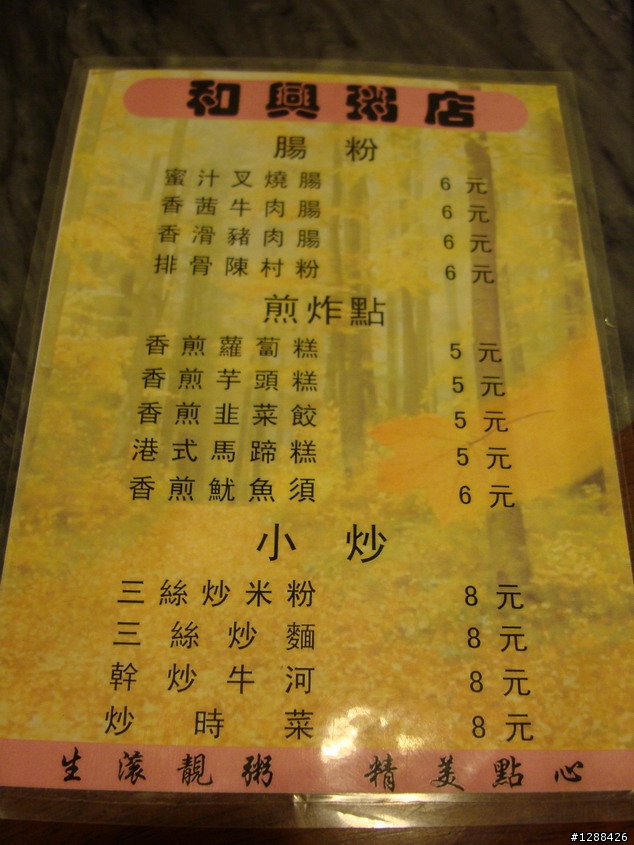 和興粥店
腸粉
蜜汁叉燒腸 6元
香茜牛肉腸 6元
香滑豬肉腸 6元
排骨陳村粉 6元
煎炸點
香煎蘿蔔糕 5元
香煎芋頭糕 5元
香煎韭菜餃 5元
港式馬蹄糕 5元
香煎魷魚須 6元
小炒
三絲炒米粉 8元
三絲炒麵 8元
幹炒牛河 8元
炒時菜 8元
生滾靚粥 精美點心
#1288426